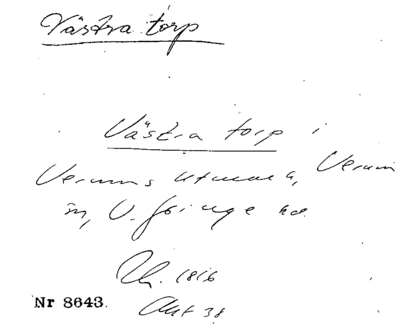 Västra torp
Västra torp i
Verums utmark, Verum
sn, V. Göinge hd.
Uh. 1816
Akt 38
Nr 8643.